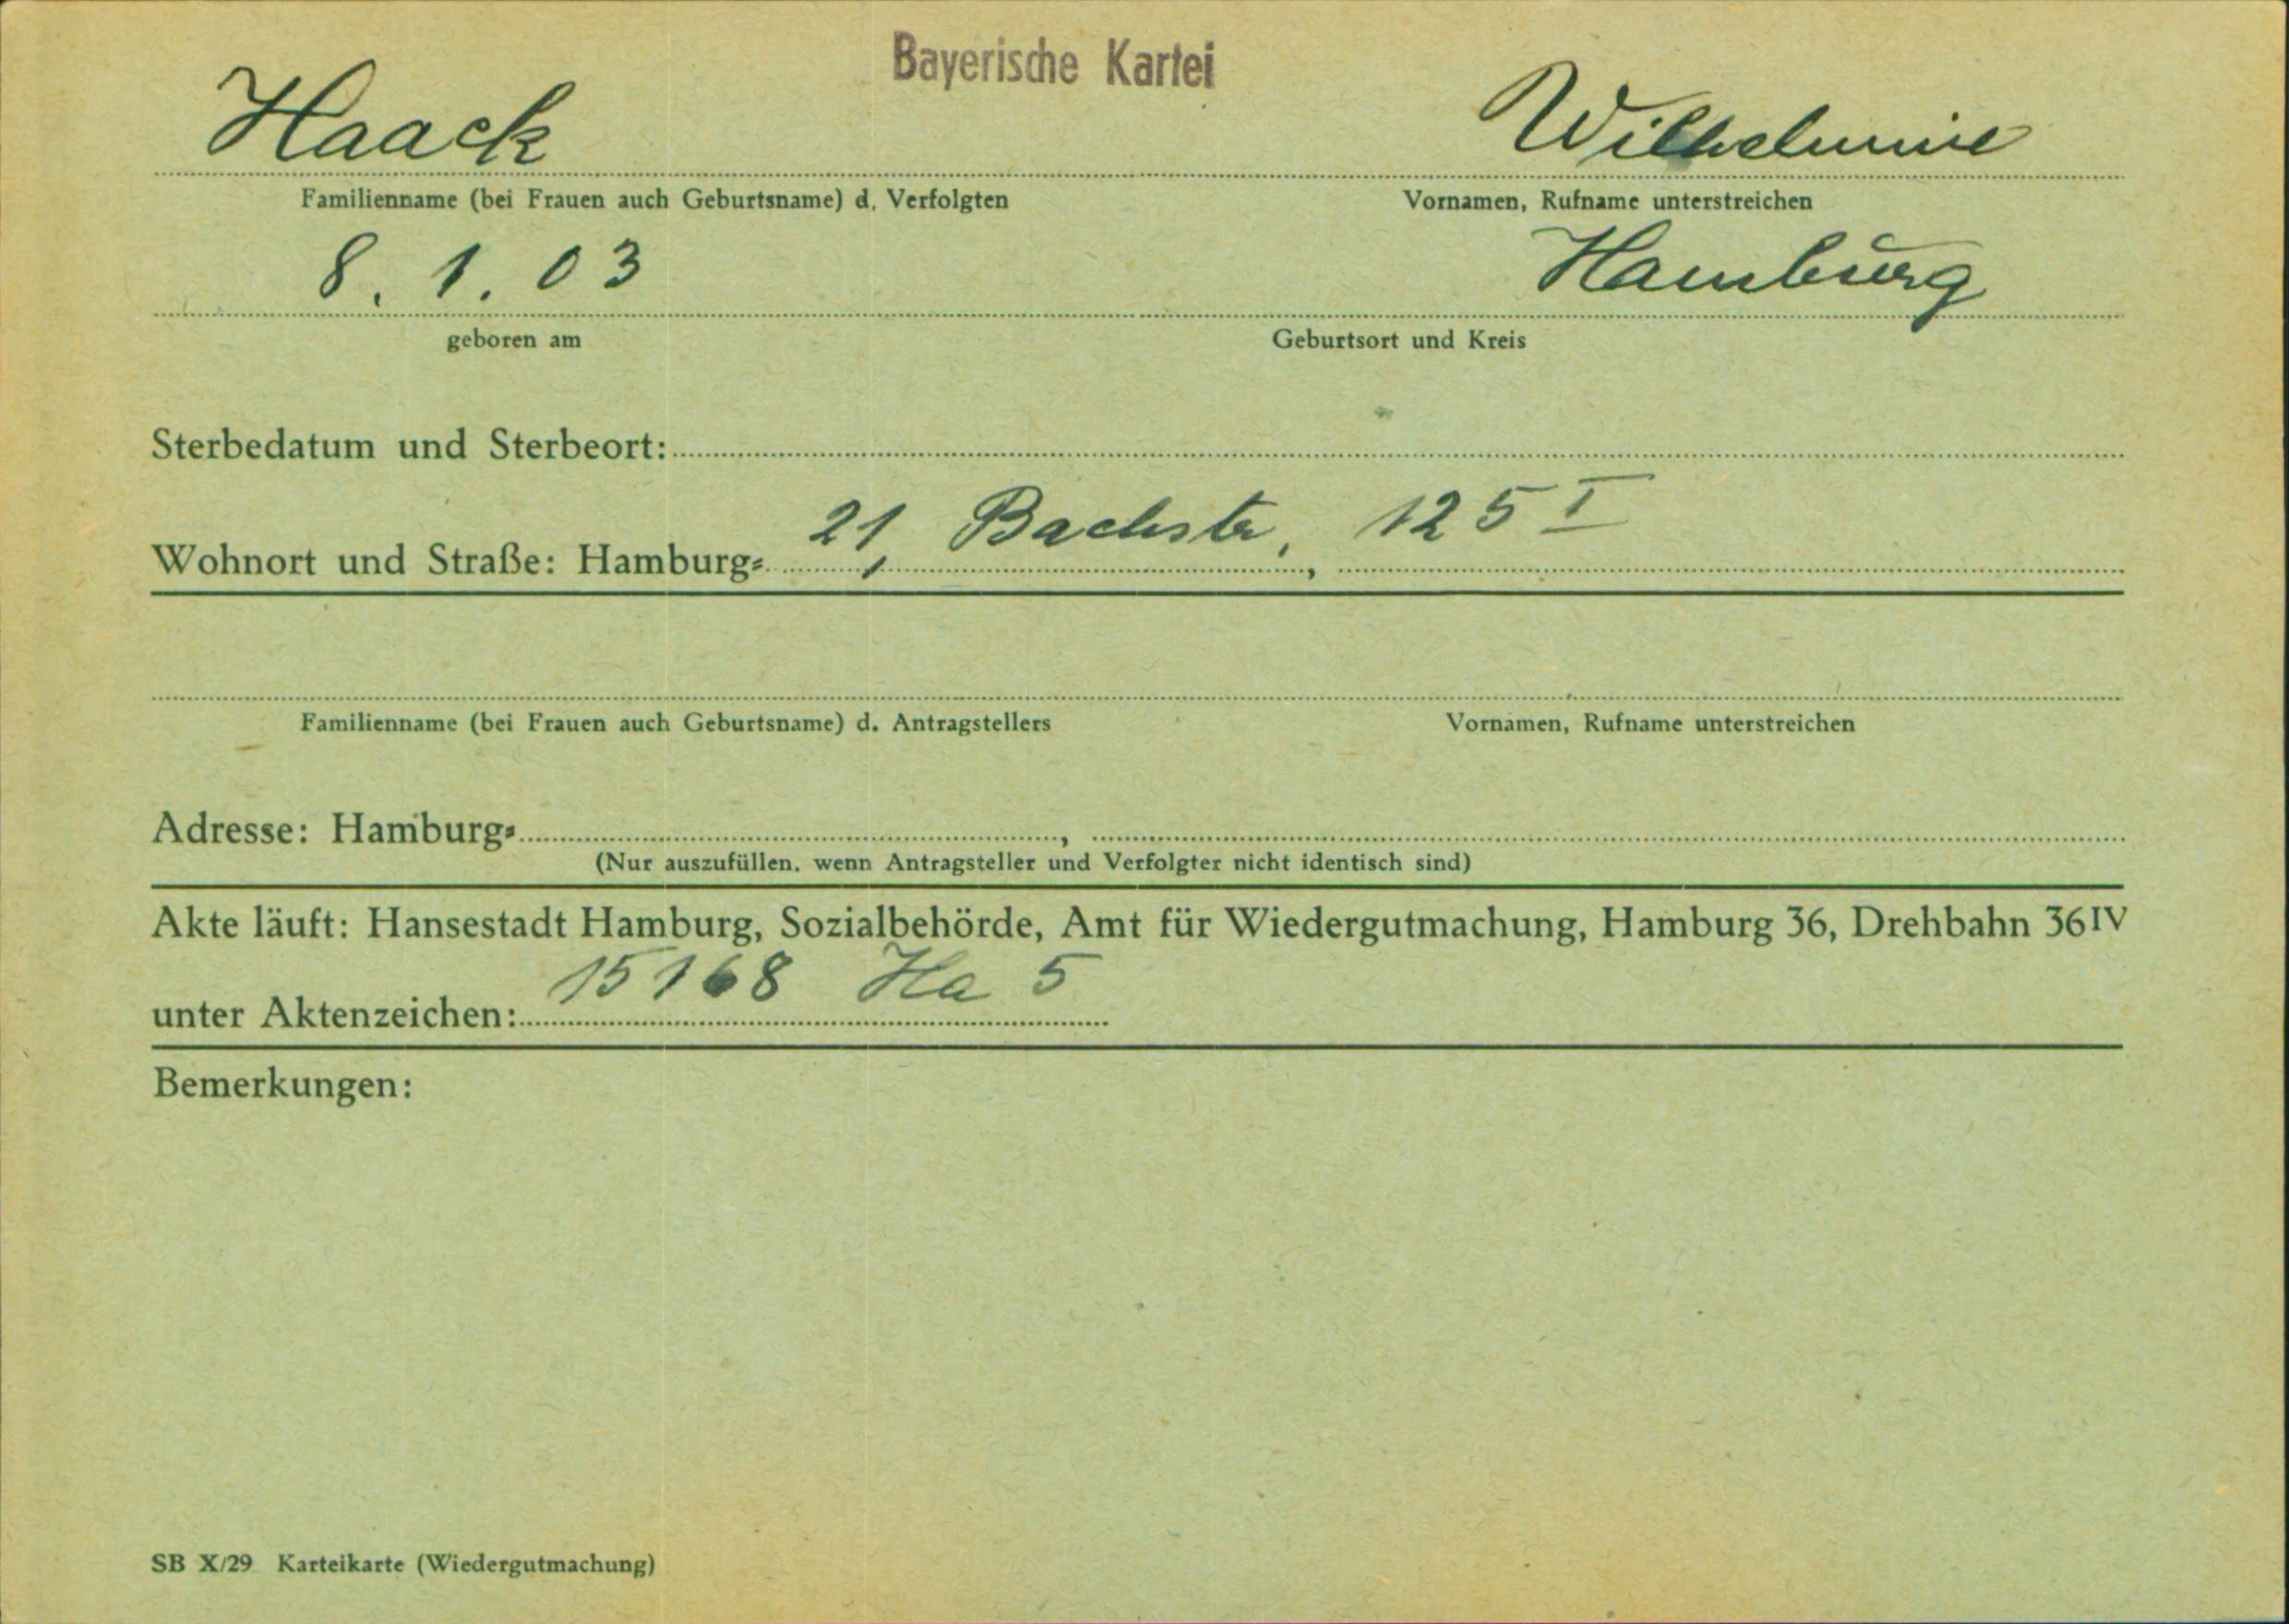 Bayerische Kartei
Haack Wilhelmine
Familienname (bei Frauen auch Geburtsname) d. Verfolgten Vornamen, Rufname unterstreichen
8. 1. 03 Hamburg
geboren am Geburtsort und Kreis
Sterbedatum und Sterbeort:
Wohnort und Straße: Hamburg= 21, Bachstr, 125 I
Familienname (bei Frauen auch Geburtsname) d. Antragstellers Vornamen, Rufname unterstreichen
Adresse: Hamburg= ,
(Nur auszufüllen, wenn Antragsteller und Verfolgter nicht identisch sind)
Akte läuft: Hansestadt Hamburg, Sozialbehörde, Amt für Wiedergutmachung, Hamburg 36, Drehbahn 36 IV
unter Aktenzeichen: 15168 Ha 5
Bemerkungen:
SB X/29 Karteikarte (Wiedergutmachung)